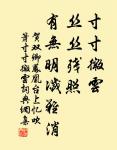 寸寸微雲
丝丝残照
有無明滅難消
賀双卿鳳凰台上忆吹
寸寸微雲詞典